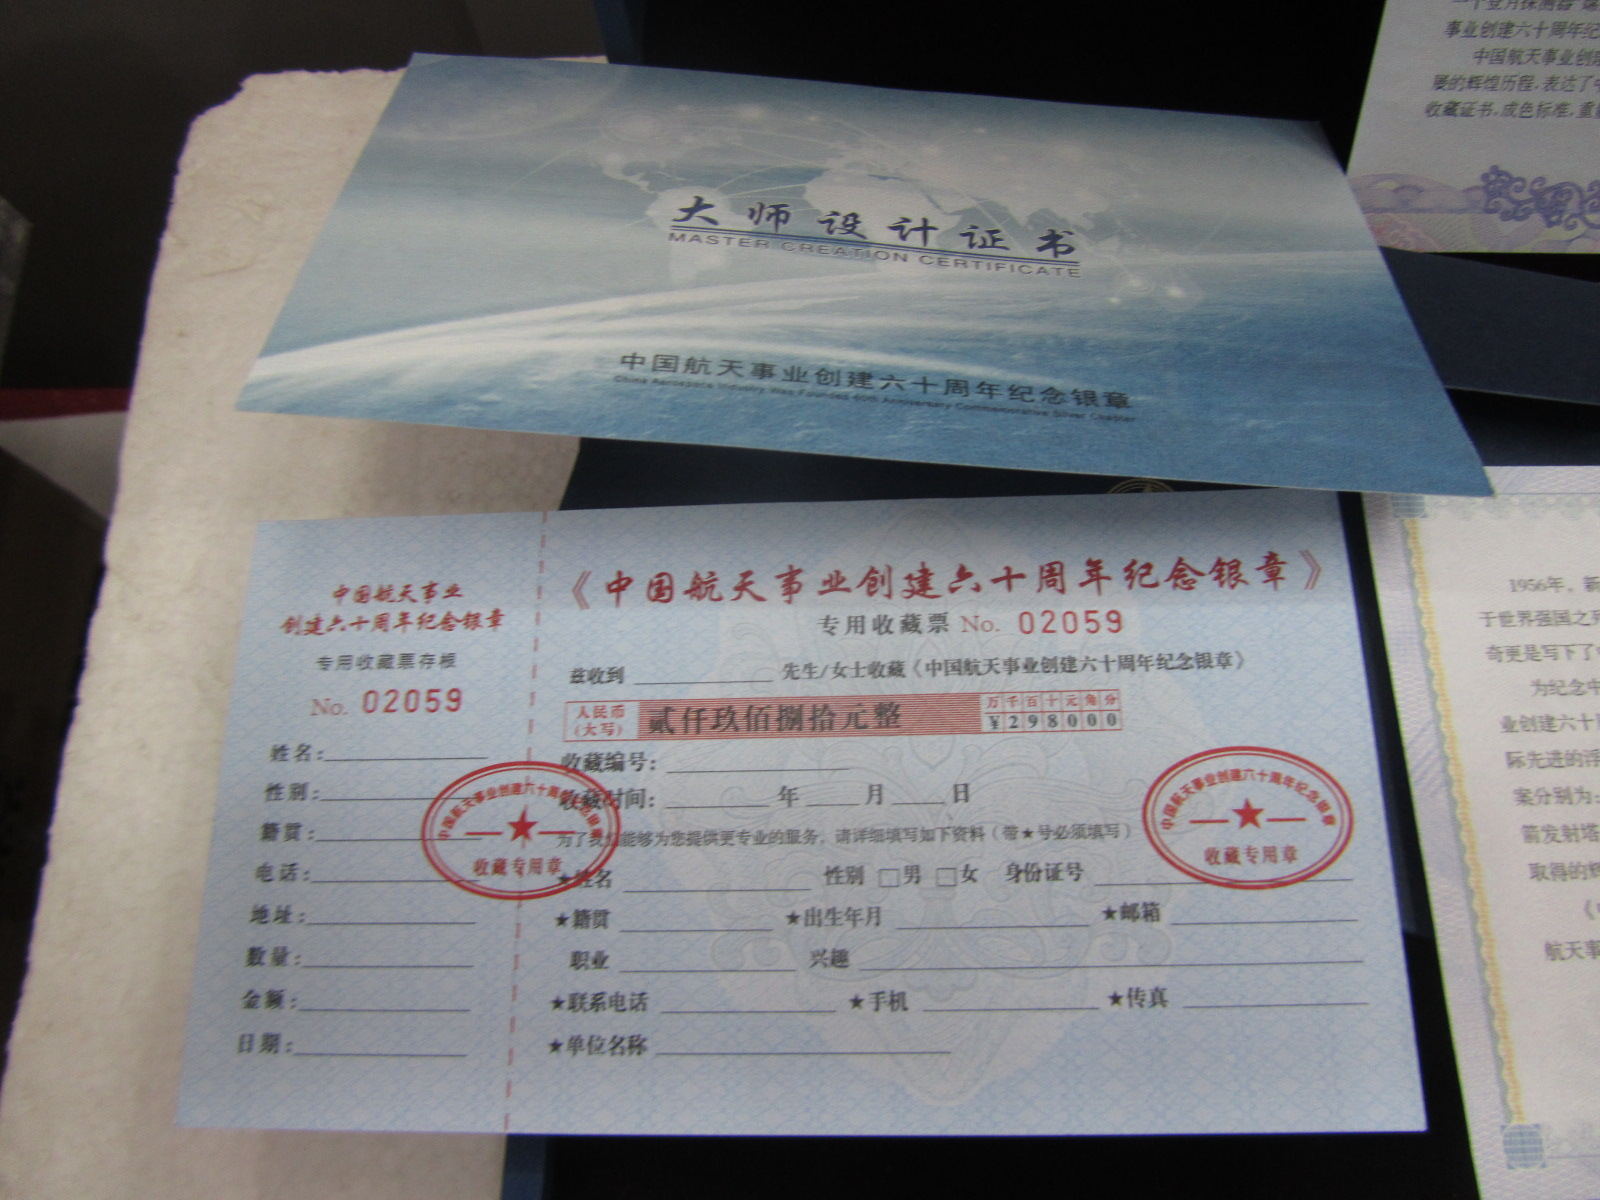 一个登月探测器
事业创建六十周年纪
中国航天事业创
展的辉煌历程,表达了
收藏证书,成色标准,重
大师设计证书
MASTER CREATION CERTIFICATE
中国航天事业创建六十周年纪念银章
China Aerospace Industry Was Founded 60th Anniversary Commemorative Silver Chapter
中国航天事业
创建六十周年纪念银章
专用收藏票存根
No. 02059
姓名:
性别:
籍贯:
电话:
地址:
数量:
金额:
日期:
《中国航天事业创建六十周年纪念银章》
专用收藏票 No. 02059
兹收到 先生/女士收藏《中国航天事业创建六十周年纪念银章》
人民币(大写) 贰仟玖佰捌拾元整
万千百十元角分
¥298000
收藏编号:
收藏时间: 年 月 日
为了我们能够为您提供更专业的服务,请详细填写如下资料(带★号必须填写)
★姓名 性别 □男 □女 身份证号
★籍贯 ★出生年月 ★邮箱
职业 兴趣
★联系电话 ★手机 ★传真
★单位名称
中国航天事业创建六十周年纪念银章
收藏专用章
中国航天事业创建六十周年纪念银章
收藏专用章
1956年,新
于世界强国之列
奇更是写下了
为纪念中
业创建六十
际先进的浮
案分别为:
箭发射塔
取得的辉
《
航天事